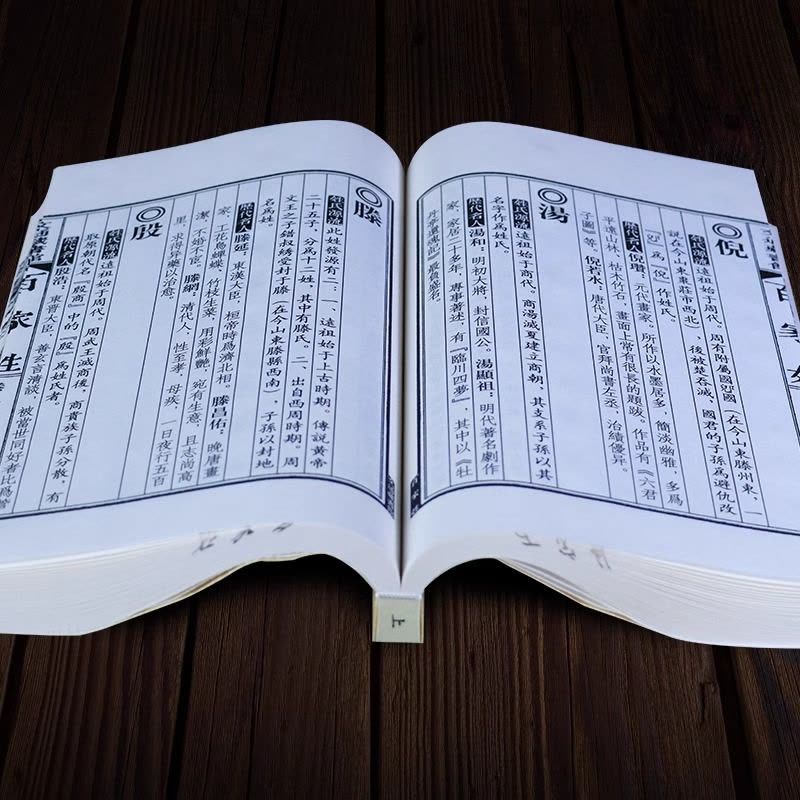 ◎倪
姓氏源流 遠祖始于周代。周有附屬國郳國（在今山東滕州東，一
説在今山東棗莊市西北），後被楚吞滅，國君的子孫爲避仇改
『郳』爲『倪』作姓氏。
歷代名人 倪瓚：元代畫家。所作以水墨居多，簡淡幽雅，多爲
平遠山林、枯木竹石，畫面上常有很長的題跋。作品有《六君
子圖》等。倪若水：唐代大臣，官拜尚書左丞，治績優异。
◎湯
姓氏源流 遠祖始于商代。商湯滅夏建立商朝，其支系子孫以其
名字作爲姓氏。
歷代名人 湯和：明初大將，封信國公。湯顯祖：明代著名劇作
家，家居二十多年，專事著述，有『臨川四夢』，其中以《牡
丹亭還魂記》最負盛名。
◎滕
姓氏源流 此姓發源有二：一、遠祖始于上古時期。傳説黄帝
二十五子，分爲十二姓，其中有滕氏。二、出自西周時期。周
文王之子錯叔綉受封于滕（在今山東滕縣西南），子孫以封地
名爲姓。
歷代名人 滕延：東漢大臣，桓帝時爲濟北相。滕昌佑：晚唐畫
家，工花鳥蟬蝶、竹枝生菜，用彩鮮艷，宛有生意，且志尚高
潔，不婚不宦。滕綱：清代人，性至孝，母疾，一日夜行五百
里，求得异藥以治愈。
◎殷
姓氏源流 遠祖始于周代。周武王滅商後，商貴族子孫分散，有
取原朝代名『殷商』中的『殷』爲姓氏者。
歷代名人 殷浩：東晉大臣，善玄言清談，被當世同好者比爲管
百家姓
上